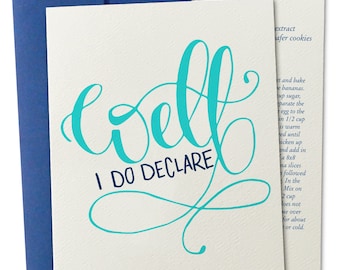 Well
I DO DECLARE
extract
afer cookies
and bake
bananas
up sugar,
parate the
egg to the
in 1/2 cup
is warm
ed until
hicken up
and add in
a 8x8
na slices
followed
. In the
Mix on
cup
oes not
ue over
for about